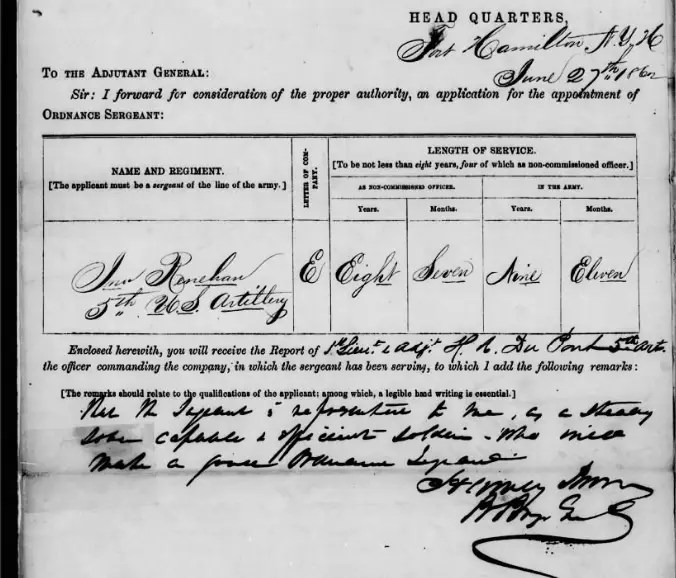 HEAD QUARTERS,
Fort Hamilton, N.Y.H
June 27th 1862
TO THE ADJUTANT GENERAL:
Sir: I forward for consideration of the proper authority, an application for the appointment of
ORDNANCE SERGEANT:
NAME AND REGIMENT.
[The applicant must be a sergeant of the line of the army.]
LETTER OF COM-
PANY.
LENGTH OF SERVICE.
[To be not less than eight years, four of which as non-commissioned officer.]
AS NON-COMMISSIONED OFFICER.
IN THE ARMY.
Years.
Months.
Years.
Months.
Jno Renehan
5th U.S. Artillery
E
Eight
Seven
Nine
Eleven
Enclosed herewith, you will receive the Report of 1st Lieut. & Adjt. H. A. Du Pont 5th Art.
the officer commanding the company, in which the sergeant has been serving, to which I add the following remarks:
[The remarks should relate to the qualifications of the applicant; among which, a legible hand writing is essential.]
Sergeant is represented to me, as a steady
sober capable & efficient soldier - who
make a good Ordnance Sergeant
Harvey Brown